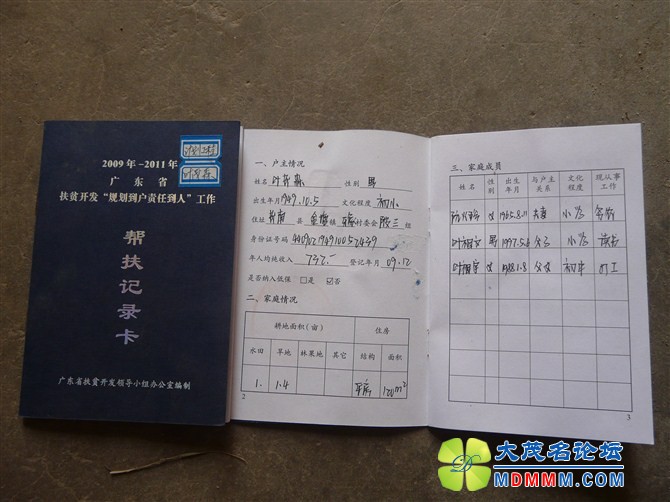 2009年-2011年
广东省
扶贫开发“规划到户责任到人”工作
帮扶记录卡
广东省扶贫开发领导小组办公室编制
一、户主情况
姓名 性别 男
出生年月1949.10.5 文化程度 初小
住址 县 镇 村委会 组
身份证号码
年人均纯收入 732.- 登记年月 09.12
是否纳入低保 □是 ☑否
二、家庭情况
耕地面积(亩) 住房
水田 旱地 林果地 其它 结构 面积
1. 1.4 平房 120m²
2
三、家庭成员
姓名 性别 出生年月 与户主关系 文化程度 现从事工作
女 1965.8.11 夫妻 小学 务农
男 1997.5.6 父子 小学 读书
女 1988.1.8 父女 初中 打工
3
大茂名论坛
MDMMM.COM